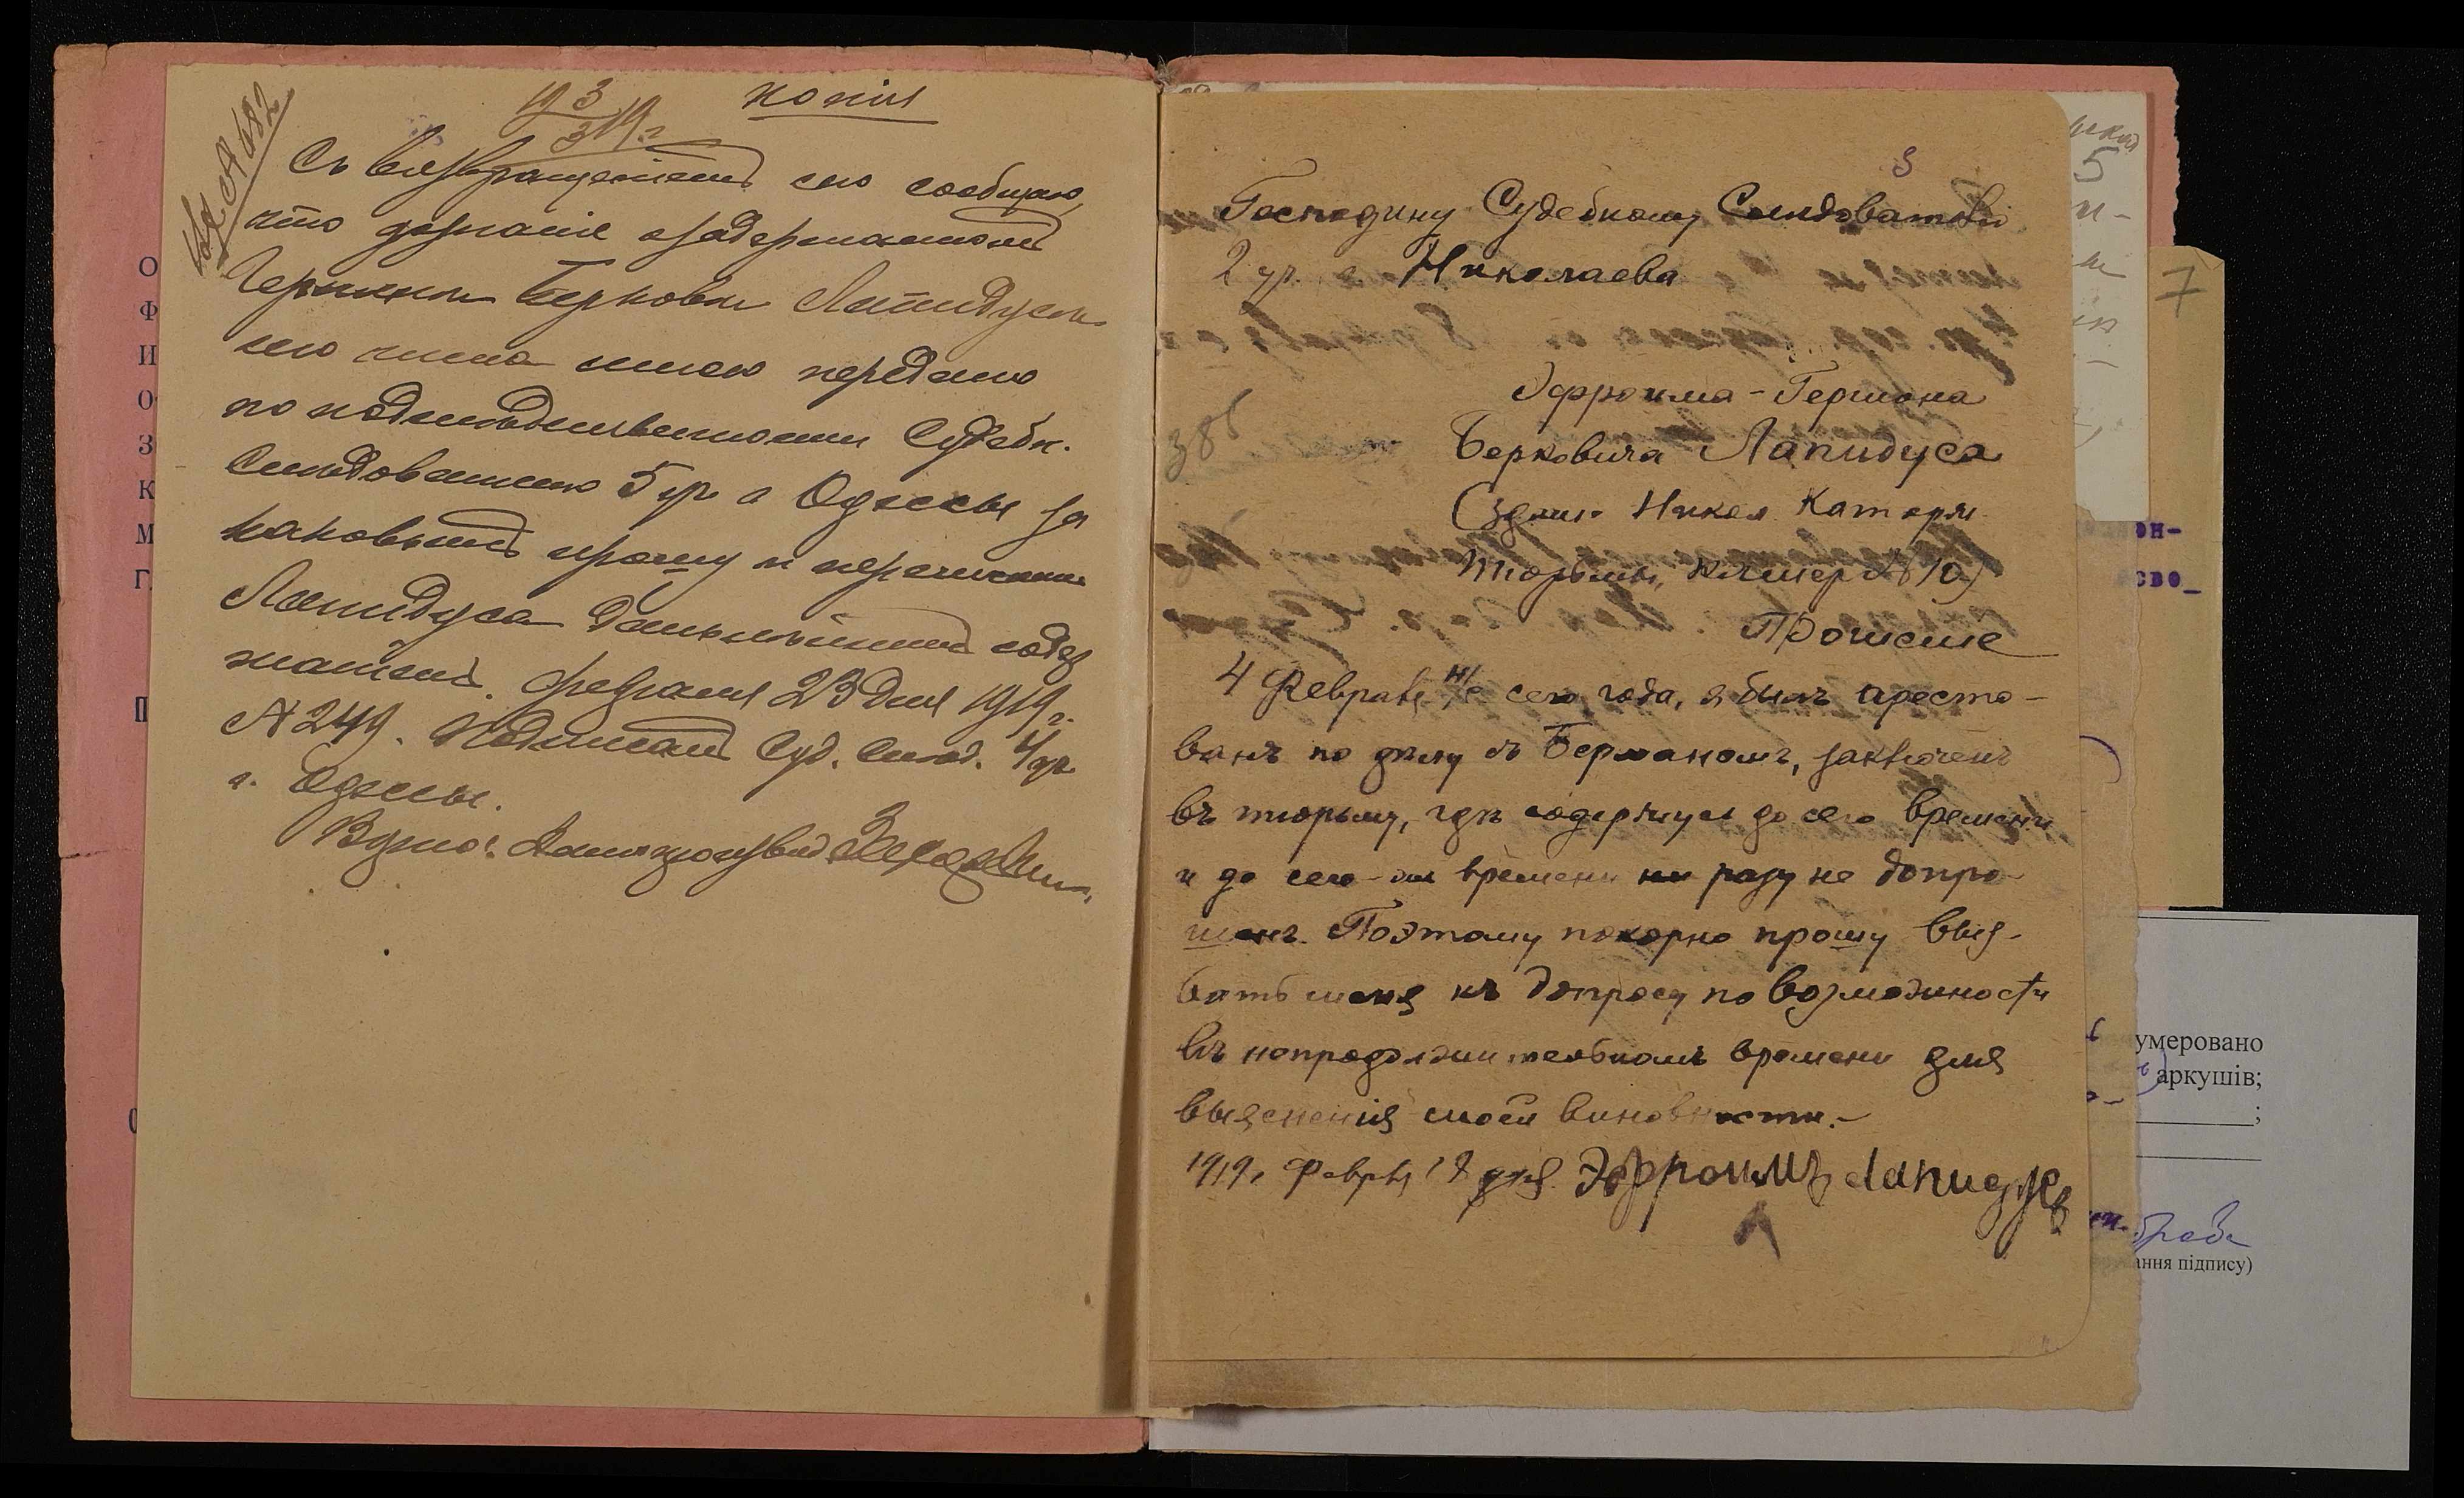 копія
19 3/3 19 г.
Вх № 682
Съ возвращеніемъ сего сообщаю,
что дознаніе о задержанномъ
Гершконе Берковѣ Лапидусѣ
сего числа мною передано
по подслѣдственности Судебн.
Слѣдователю 5 уч. г. Одессы за
каковымъ прошу и перечислить
Лапидуса дальнѣйшимъ содер
жаніемъ. Февраля 23 дня 1919 г.
№ 249. Подписалъ Суд. Слѣд. 4 уч.
г. Одессы.
3
Господину Судебному Слѣдователю
2 уч. г. Николаева
386
Эфроима-Гершона
Берковича Лапидуса
Никол. Каторж.
тюрьмы, камера № 10)
Прошеніе
4 Февраля н/с сего года, я былъ аресто-
ванъ по дѣлу съ Берманомъ, заключенъ
въ тюрьму, гдѣ содержусь до сего времени
и до сего времени ни разу не допро-
шенъ. Поэтому покорно прошу выз-
вать меня къ допросу по возможности
въ непродолжительномъ времени для
выясненія моей виновности.-
1919 г. Февраля 18 дня. Эфроимъ Лапидусъ
5
7
он-
сво_
умеровано
аркушів;
;
ання підпису)
О
Ф
И
О
З
К
М
Г.
П